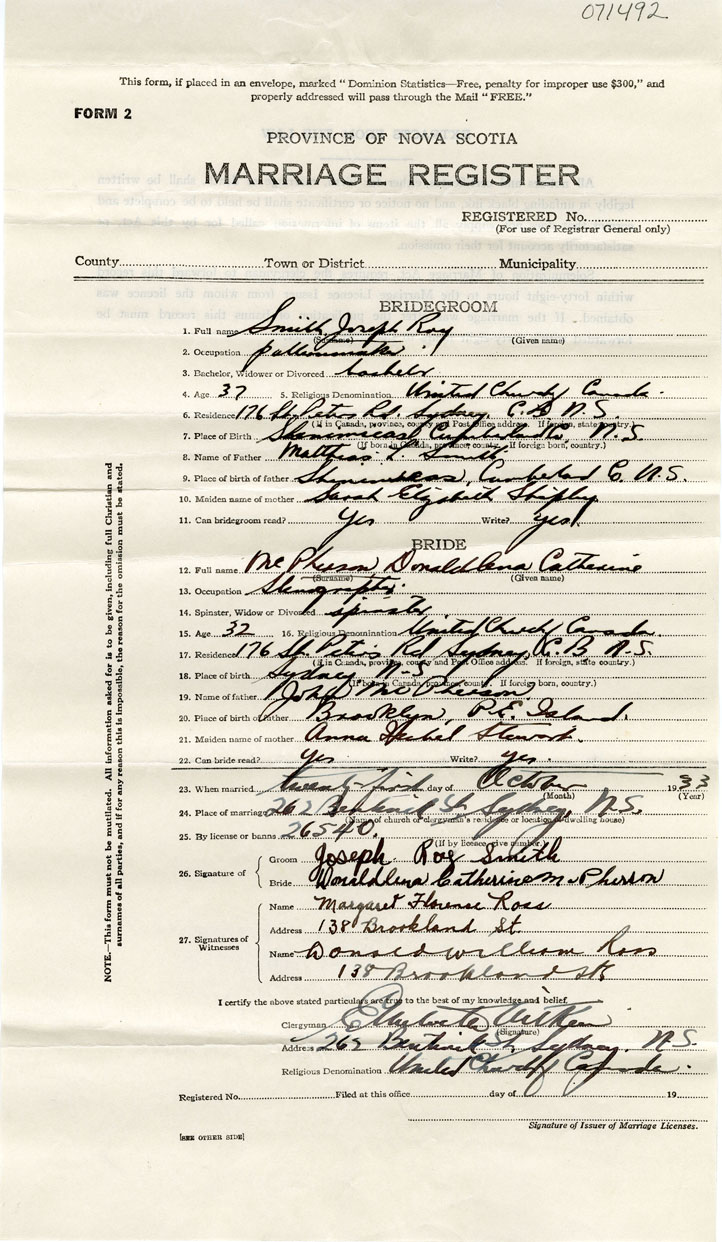 071492
This form, if placed in an envelope, marked "Dominion Statistics—Free, penalty for improper use $300," and
properly addressed will pass through the Mail "FREE."
FORM 2
PROVINCE OF NOVA SCOTIA
MARRIAGE REGISTER
REGISTERED No.
(For use of Registrar General only)
County Town or District Municipality
BRIDEGROOM
1. Full name Smith Joseph Roy
(Surname) (Given name)
2. Occupation patternmaker
3. Bachelor, Widower or Divorced bachelor
4. Age 37 5. Religious Denomination United Church Canada.
6. Residence 176 St. Peters Rd. Sydney, C.B. N.S.
(If in Canada, province, county and Post Office address. If foreign, state country.)
7. Place of Birth N.S.
(If born in Canada, province, county. If foreign born, country.)
8. Name of Father Matthias Smith
9. Place of birth of father Cumberland Co. N.S.
10. Maiden name of mother Sarah Elizabeth Shipley
11. Can bridegroom read? Yes Write? yes
BRIDE
12. Full name McPherson Donaldlena Catherine
(Surname) (Given name)
13. Occupation Stenographer
14. Spinster, Widow or Divorced spinster
15. Age 32 16. Religious Denomination United Church Canada.
17. Residence 176 St. Peters Rd Sydney, C.B. N.S.
(If in Canada, province, county and Post Office address. If foreign, state country.)
18. Place of birth Sydney N.S.
(If born in Canada, province, county. If foreign born, country.)
19. Name of father John McPherson
20. Place of birth of father Brooklyn, P.E. Island.
21. Maiden name of mother Anna Isabel Stewart.
22. Can bride read? yes Write? yes.
23. When married twenty-first day of October 1933
(Month) (Year)
24. Place of marriage 262 Bentinck St., Sydney, N.S.
(Name of church or clergyman's residence or location of dwelling house)
25. By license or banns 26540.
(If by licence, give number.)
26. Signature of
Groom Joseph Roy Smith
Bride Donaldlena Catherine McPherson
27. Signatures of
Witnesses
Name Margaret Florence Ross
Address 138 Brookland St.
Name Donald William Ross
Address 138 Brookland St
I certify the above stated particulars are true to the best of my knowledge and belief.
Clergyman Aitken
(Signature)
Address 262 Bentinck St., Sydney, N.S.
Religious Denomination United Church of Canada.
Registered No. Filed at this office day of 19
Signature of Issuer of Marriage Licenses.
[SEE OTHER SIDE]
NOTE.—This form must not be mutilated. All information asked for is to be given, including full Christian and
surnames of all parties, and if for any reason this is impossible, the reason for the omission must be stated.